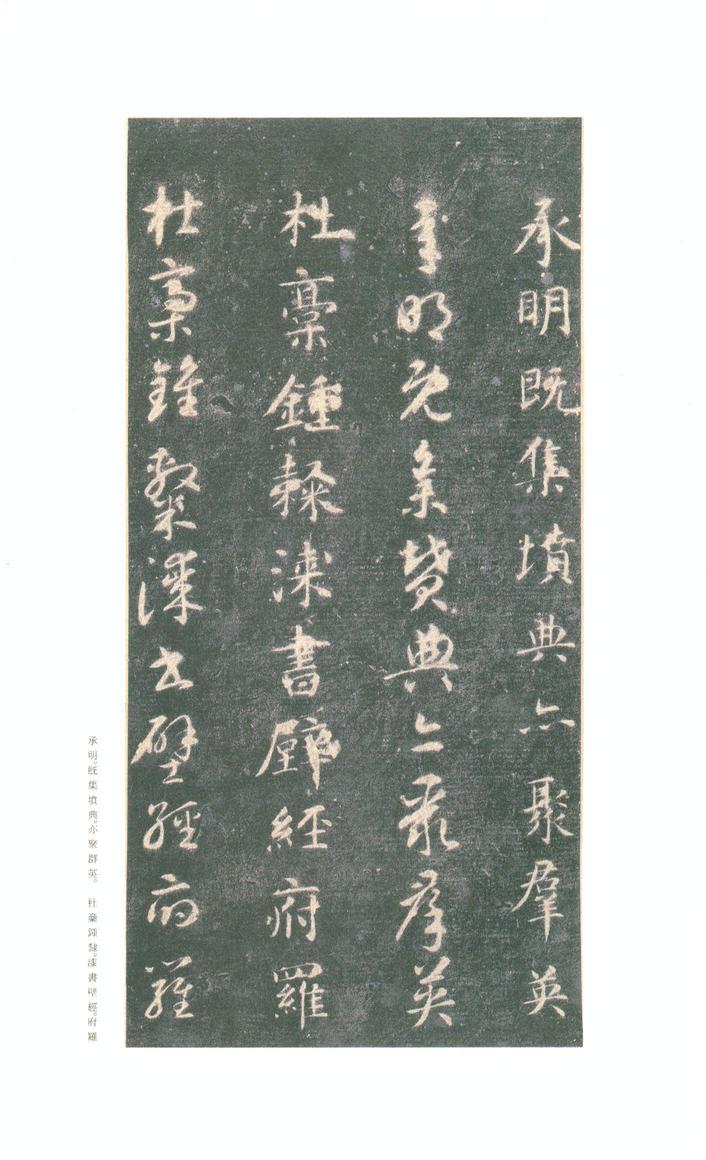 承明既集墳典亦聚羣英
承明既集墳典亦聚羣英
杜稾鍾隸漆書壁經府羅
杜稾鍾隸漆書壁經府羅
承明。既集墳典。亦聚群英。 杜稾鍾隸。漆書壁經。府羅